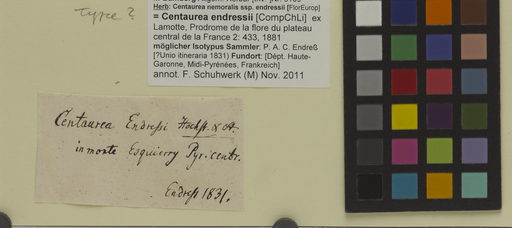 type ?
Herb: Centaurea nemoralis ssp. endressii [FlorEurop]
= Centaurea endressii [CompChLi] ex
Lamotte, Prodrome de la flore du plateau
central de la France 2: 433, 1881
möglicher Isotypus Sammler: P. A. C. Endreß
[?Unio itineraria 1831) Fundort: [Dépt. Haute-
Garonne, Midi-Pyrénées, Frankreich]
annot. F. Schuhwerk (M) Nov. 2011
Centaurea Endressi Hochst. & St.
in monte Esquierry Pyr. centr.
Endreß 1831.